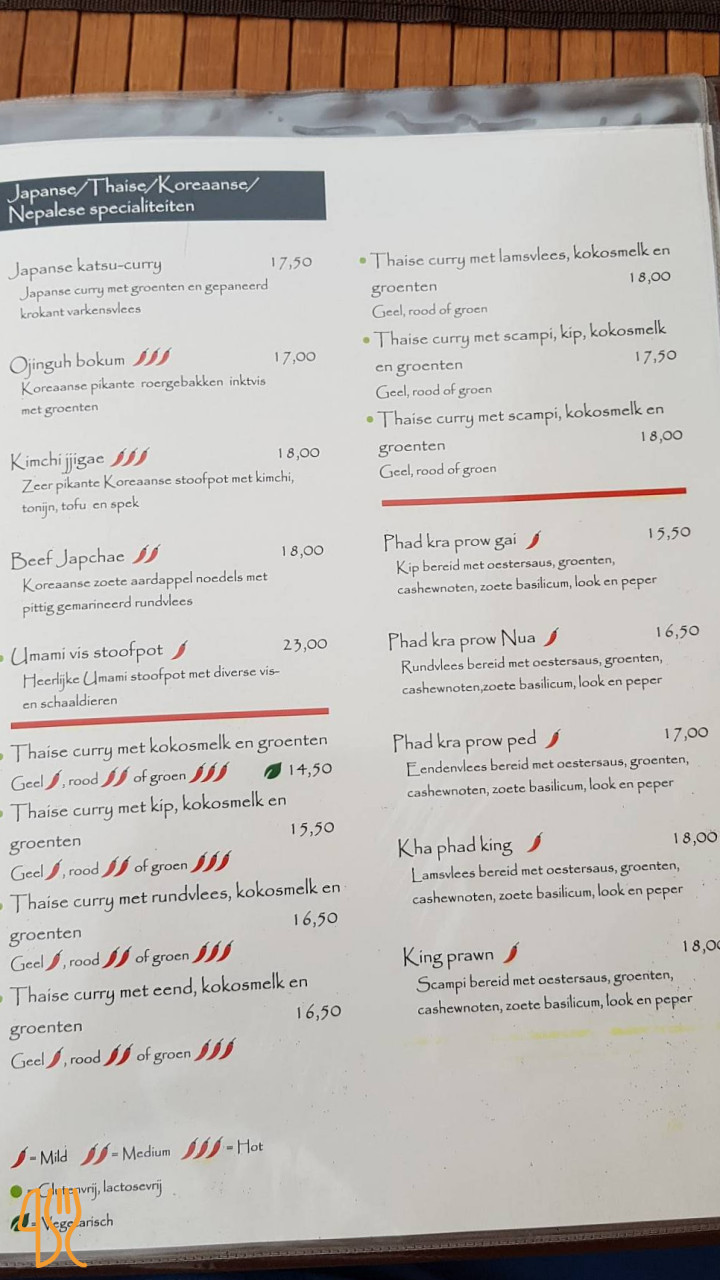 Japanse/Thaise/Koreaanse/
Nepalese specialiteiten
Japanse katsu-curry 17,50
Japanse curry met groenten en gepaneerd
krokant varkensvlees
Ojinguh bokum 17,00
Koreaanse pikante roergebakken inktvis
met groenten
Kimchi jjigae 18,00
Zeer pikante Koreaanse stoofpot met kimchi,
tonijn, tofu en spek
Beef Japchae 18,00
Koreaanse zoete aardappel noedels met
pittig gemarineerd rundvlees
Umami vis stoofpot 23,00
Heerlijke Umami stoofpot met diverse vis-
en schaaldieren
Thaise curry met kokosmelk en groenten
Geel, rood of groen 14,50
Thaise curry met kip, kokosmelk en
groenten 15,50
Geel, rood of groen
Thaise curry met rundvlees, kokosmelk en
groenten 16,50
Geel, rood of groen
Thaise curry met eend, kokosmelk en
groenten 16,50
Geel, rood of groen
= Mild = Medium = Hot
= Glutenvrij, lactosevrij
= Vegetarisch
Thaise curry met lamsvlees, kokosmelk en
groenten 18,00
Geel, rood of groen
Thaise curry met scampi, kip, kokosmelk
en groenten 17,50
Geel, rood of groen
Thaise curry met scampi, kokosmelk en
groenten 18,00
Geel, rood of groen
Phad kra prow gai 15,50
Kip bereid met oestersaus, groenten,
cashewnoten, zoete basilicum, look en peper
Phad kra prow Nua 16,50
Rundvlees bereid met oestersaus, groenten,
cashewnoten,zoete basilicum, look en peper
Phad kra prow ped 17,00
Eendenvlees bereid met oestersaus, groenten,
cashewnoten, zoete basilicum, look en peper
Kha phad king 18,00
Lamsvlees bereid met oestersaus, groenten,
cashewnoten, zoete basilicum, look en peper
King prawn 18,00
Scampi bereid met oestersaus, groenten,
cashewnoten, zoete basilicum, look en peper